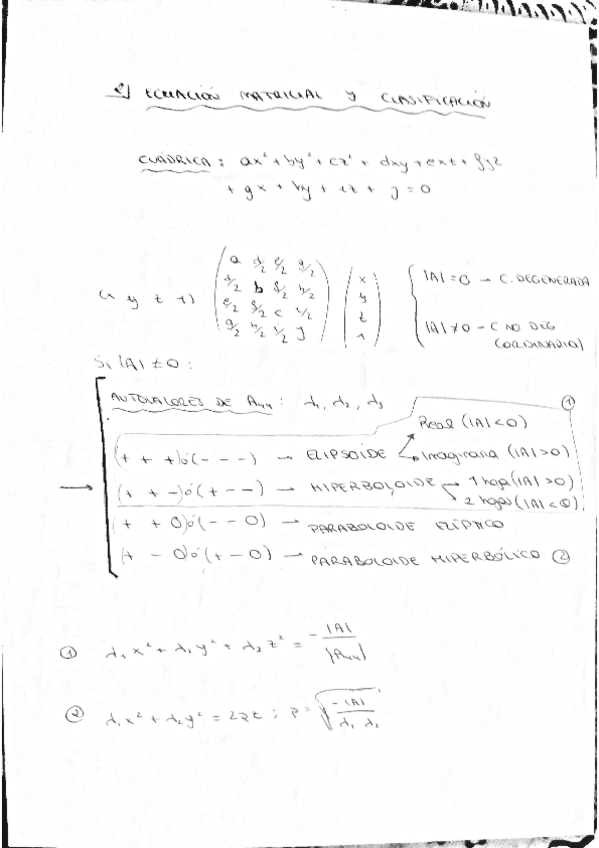 2) ECUACIÓN MATRICIAL Y CLASIFICACIÓN
CUÁDRICA: ax² + by² + cz² + dxy + exz + fyz
+ gx + hy + iz + j = 0
(x y z 1) (a d/2 e/2 g/2) (x)
(d/2 b f/2 h/2) (y)
(e/2 f/2 c i/2) (z)
(g/2 h/2 i/2 j) (1)
|A| = 0 → C. DEGENERADA
|A| ≠ 0 → C NO DEG
(ORDINARIO)
Si |A| ≠ 0:
AUTOVALORES DE A₄₄: λ₁, λ₂, λ₃ ①
(+ + +) ó (- - -) → ELIPSOIDE Real (|A| < 0)
Imaginaria (|A| > 0)
(+ + -) ó (+ - -) → HIPERBOLOIDE 1 hoja (|A| > 0)
2 hojas (|A| < 0)
(+ + 0) ó (- - 0) → PARABOLOIDE ELÍPTICO
(+ - 0) ó (+ - 0) → PARABOLOIDE HIPERBÓLICO ②
① λ₁x² + λ₂y² + λ₃z² = -|A| / |A₄₄|
② λ₁x² + λ₂y² = 2pz ; p = √(-|A| / λ₁ λ₂)